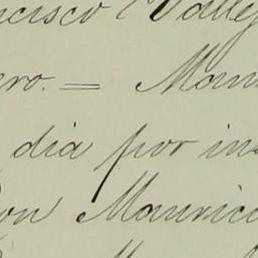 ncisco Valle
ero. = Mau
dia por ins
on Maurici